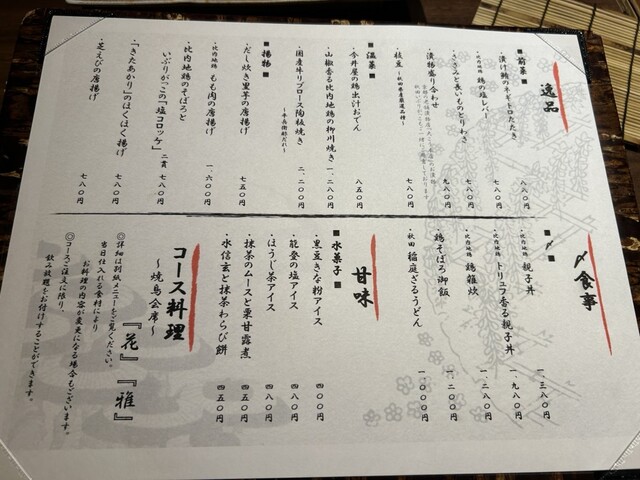 逸品
■前菜■
・漬け鮪のネギトロたたき 八八〇円
・比内地鶏 鶏の塩レバー 七八〇円
・ささみと長いものとりわさ 九八〇円
・漬物盛り合わせ 七八〇円
・枝豆 〜秋田県産厳選品種〜 七八〇円
■温菜■
・今井屋の鶏出汁おでん 八五〇円
・山椒香る比内地鶏の柳川焼き 一、二八〇円
・国産牛リブロース陶板焼き 二、二〇〇円
■揚物■
・だし炊き里芋の唐揚げ 七五〇円
・比内地鶏 もも肉の唐揚げ 一、六〇〇円
・比内地鶏のそぼろと
いぶりがっこの「塩コロッケ」二貫 七八〇円
・「きたあかり」のほくほく揚げ 七八〇円
・芝えびの唐揚げ 七八〇円
〆食事
■〆■
・比内地鶏 親子丼 一、三八〇円
・比内地鶏 トリュフ香る親子丼 一、九八〇円
・比内地鶏 鶏雑炊 一、二八〇円
・鶏そぼろ御飯 一、二〇〇円
・秋田 稲庭ざるうどん 一、〇〇〇円
甘味
■水菓子■
・黒豆きな粉アイス 四〇〇円
・能登の塩アイス 四八〇円
・ほうじ茶アイス 四八〇円
・抹茶のムースと栗甘露煮 四五〇円
・水信玄と抹茶わらび餅 四五〇円
コース料理
〜焼鳥会席〜
『花』『雅』
◎詳細は別紙メニューをご覧ください。
当日仕入れる食材により
お料理の内容が変更になる場合もございます。
◎コースご注文に限り、
飲み放題をお付けすることができます。